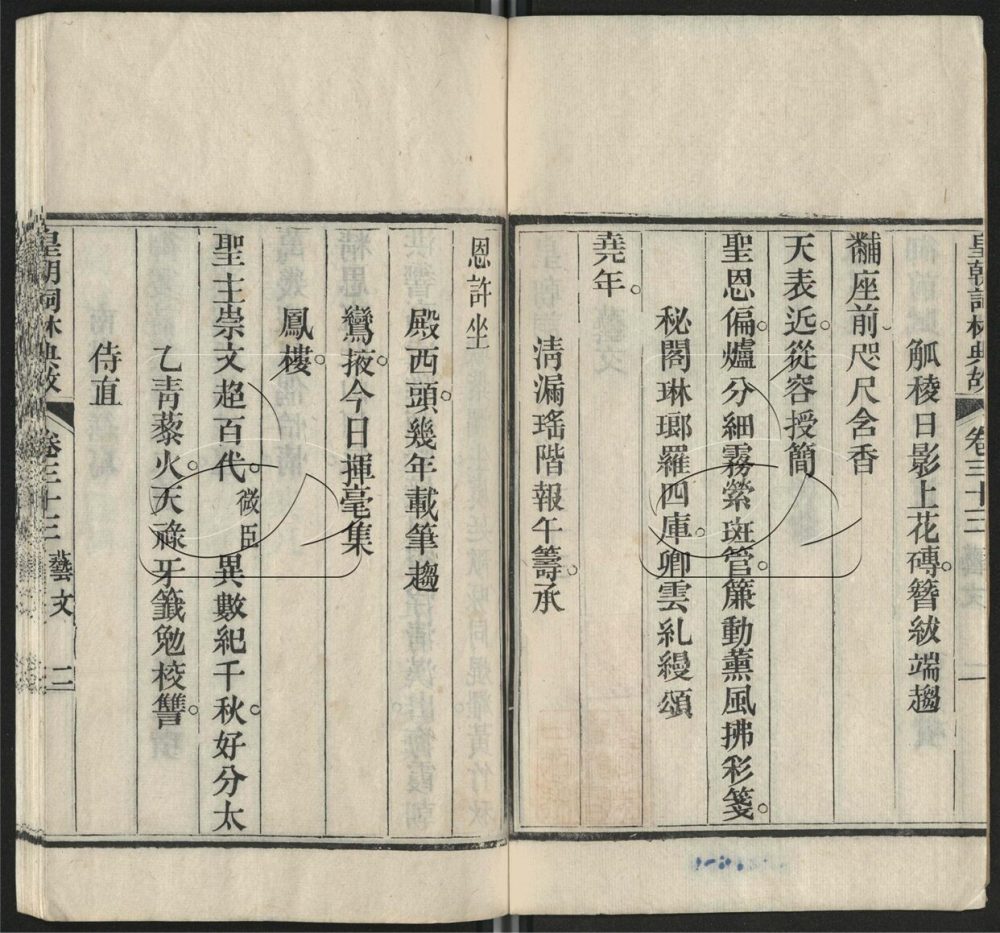 皇朝詞林典故 卷三十三
觚稜日影上花磚。簪紱端趨
黼座前。咫尺含香
天表近。從容授簡
聖恩偏。爐分細霧縈斑管。簾動薰風拂彩箋。
秘閣琳瑯羅四庫。卿雲糺縵頌
堯年。
清漏瑤階報午籌。承
恩許坐
殿西頭。幾年載筆趨
鸞掖。今日揮毫集
鳳樓。
聖主崇文超百代。微臣異數紀千秋。好分太
乙青藜火。天祿牙籤勉校讐。
侍直
皇朝詞林典故 卷三十三 藝文 二